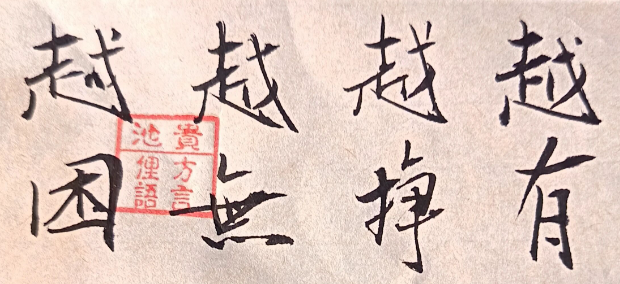 越有
越掙
越無
越困
貴池
方言
俚語